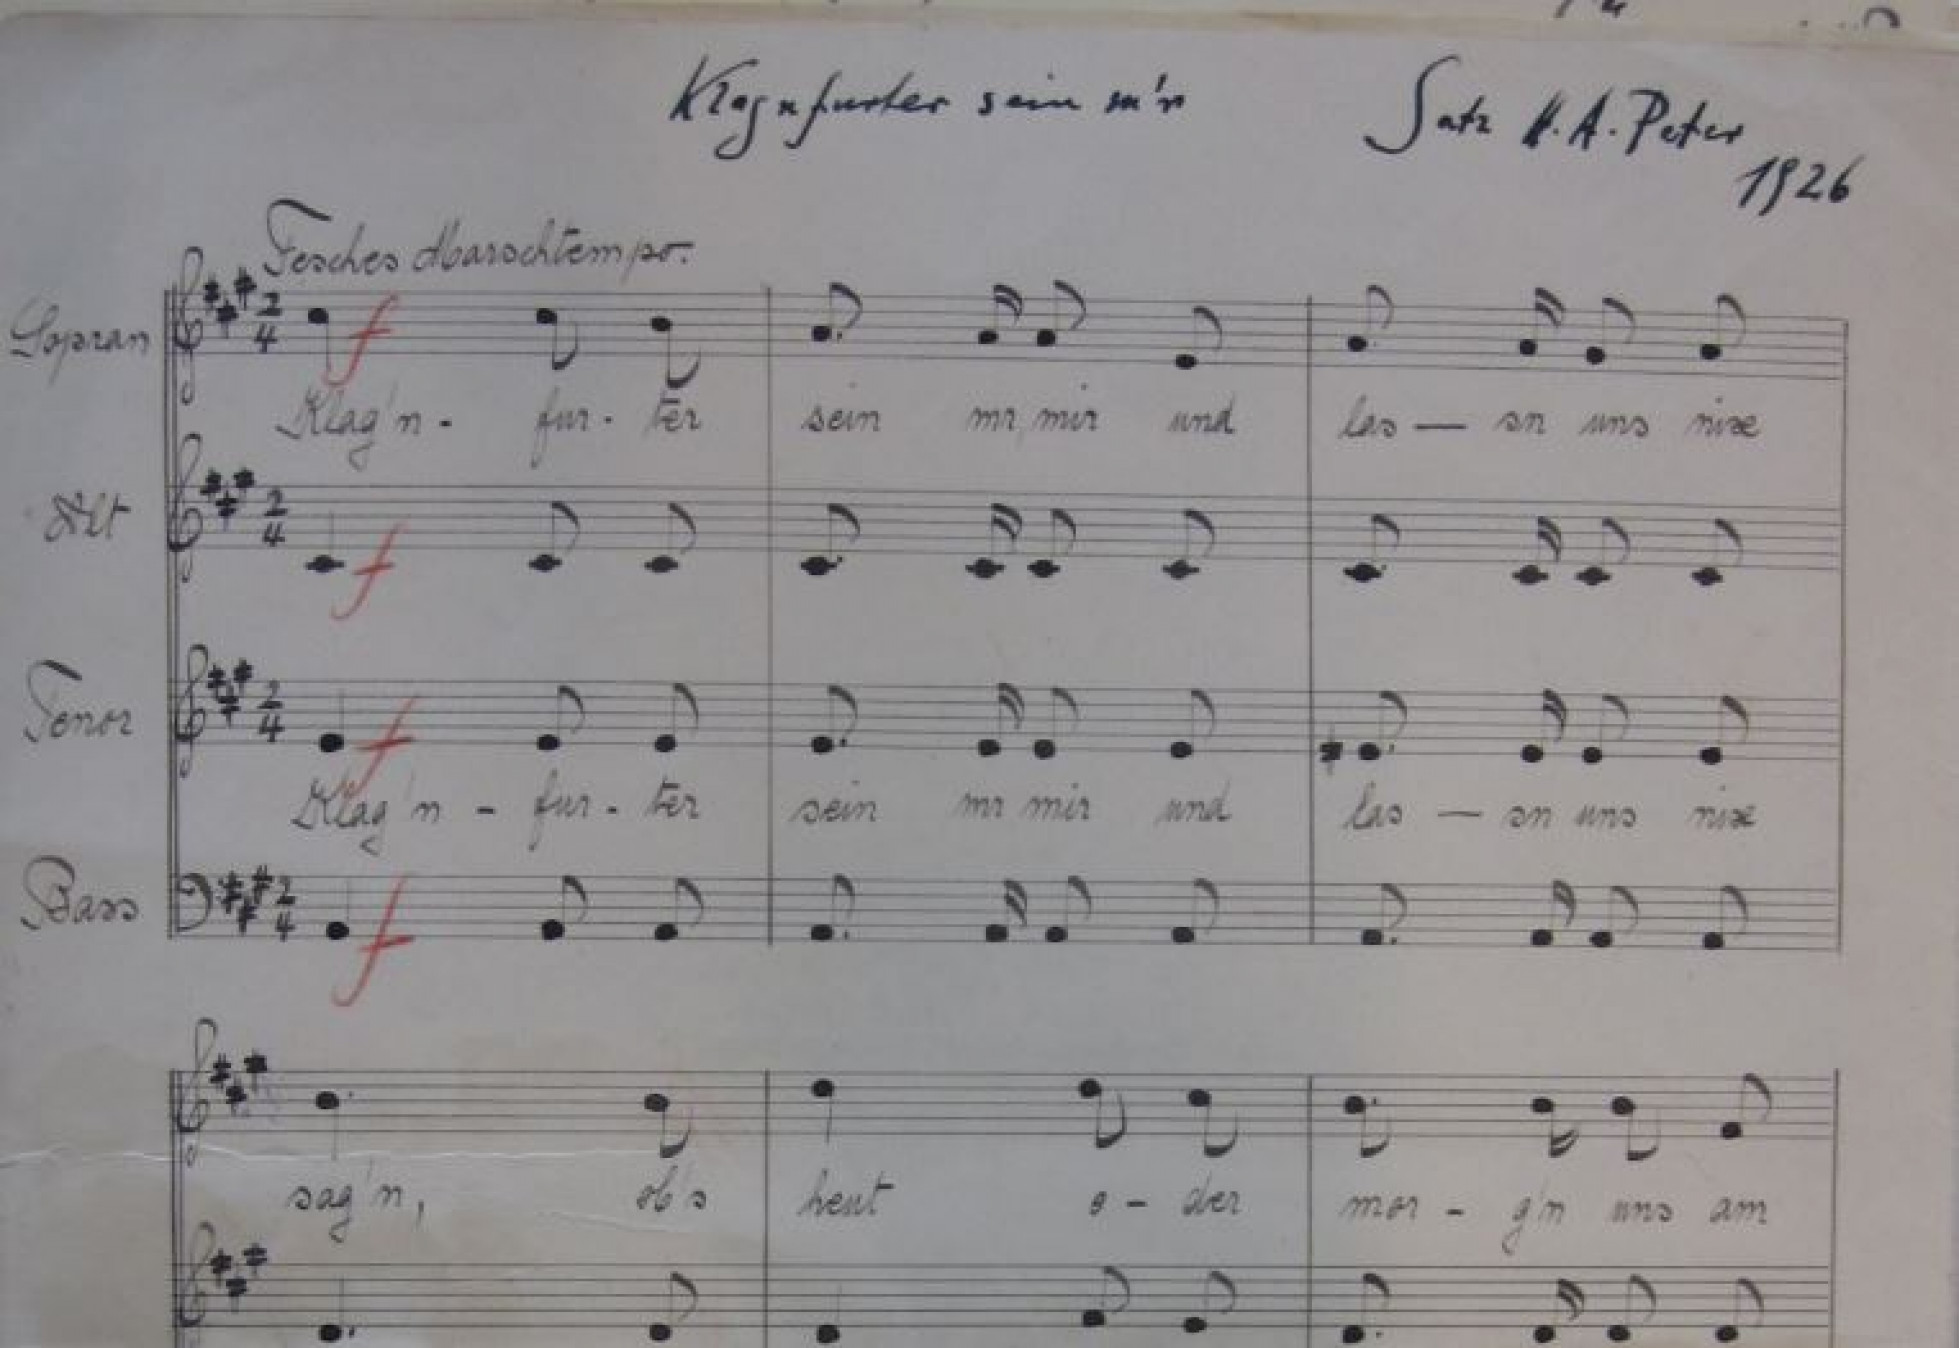 Klagnfurter sein m'r
Satz H. A. Peter
1926
Fesches Marschtempo.
Sopran
2
4
f
Klag'n - fur - ter sein mr mir und las — sn uns nixe
Alt
2
4
f
Tenor
2
4
f
Klag'n - fur - ter sein mr mir und las — sn uns nixe
Bass
2
4
f
sag'n, ob's heut o - der mor - g'n uns am